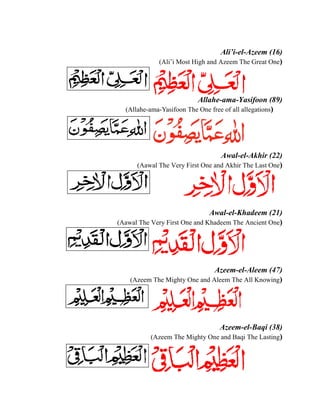 Ali'i-el-Azeem (16)
(Ali'i Most High and Azeem The Great One)
الْعَلِيِّ الْعَظِيْمِ الْعَلِيِّ الْعَظِيْمِ
Allahe-ama-Yasifoon (89)
(Allahe-ama-Yasifoon The One free of all allegations)
اللهِ عَمَّا يَصِفُوْنَ اللهِ عَمَّا يَصِفُوْنَ
Awal-el-Akhir (22)
(Aawal The Very First One and Akhir The Last One)
الْاَوَّلِ الْاٰخِرِ الْاَوَّلِ الْاٰخِرِ
Awal-el-Khadeem (21)
(Aawal The Very First One and Khadeem The Ancient One)
الْاَوَّلِ الْقَدِيْمِ الْاَوَّلِ الْقَدِيْمِ
Azeem-el-Aleem (47)
(Azeem The Mighty One and Aleem The All Knowing)
الْعَظِيْمِ الْعَلِيْمِ الْعَظِيْمِ الْعَلِيْمِ
Azeem-el-Baqi (38)
(Azeem The Mighty One and Baqi The Lasting)
الْعَظِيْمِ الْبَاقِيْ الْعَظِيْمِ الْبَاقِيْ